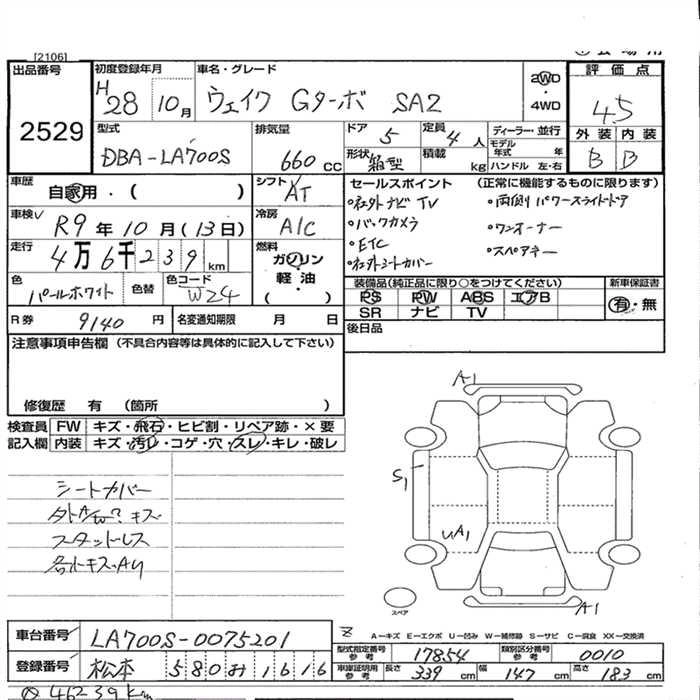 [2106]
出品番号
2529
初度登録年月
H28 10月
車名・グレード
ウェイク Gターボ SA2
2WD
・
4WD
評価点
4.5
外装 内装
B B
型式
DBA-LA700S
排気量
660 cc
ドア 5
定員 4人
形状 箱型
積載 kg
ディーラー・並行
モデル年式 年
ハンドル 左・右
車歴
自家用・( )
シフト AT
車検 R9年10月(13日)
冷房 A/C
走行 4万6千239km
燃料
ガソリン
軽油
( )
色 パールホワイト
色替
色コード W24
R券 9140円
名変通知期限 月 日
セールスポイント (正常に機能するものに限ります)
・社外ナビ TV ・両側パワースライドドア
・バックカメラ ・ワンオーナー
・ETC ・スペアキー
・社外シートカバー
装備品(純正品に限り○をつけてください)
PS PW ABS エアB
SR ナビ TV
新車保証書
有・無
後日品
注意事項申告欄 (不具合内容等は具体的に記入して下さい)
修復歴 有 (箇所 )
検査員記入欄
FW キズ・飛石・ヒビ割・リペア跡・×要
内装 キズ・汚レ・コゲ・穴・スレ・キレ・破レ
シートカバー
外AW キズ
スタッドレス
各小キズ・AU
A1
S1
UA1
A1
スペア
A－キズ E－エクボ U－凹み W－補修跡 S－サビ C－腐食 XX－交換済
車台番号 LA700S-0075201
登録番号 松本 580 み 1616
型式指定番号 参考 17854
類別区分番号 参考 0010
車庫証明用 参考 長さ 339cm 幅 147cm 高さ 183cm
46239km